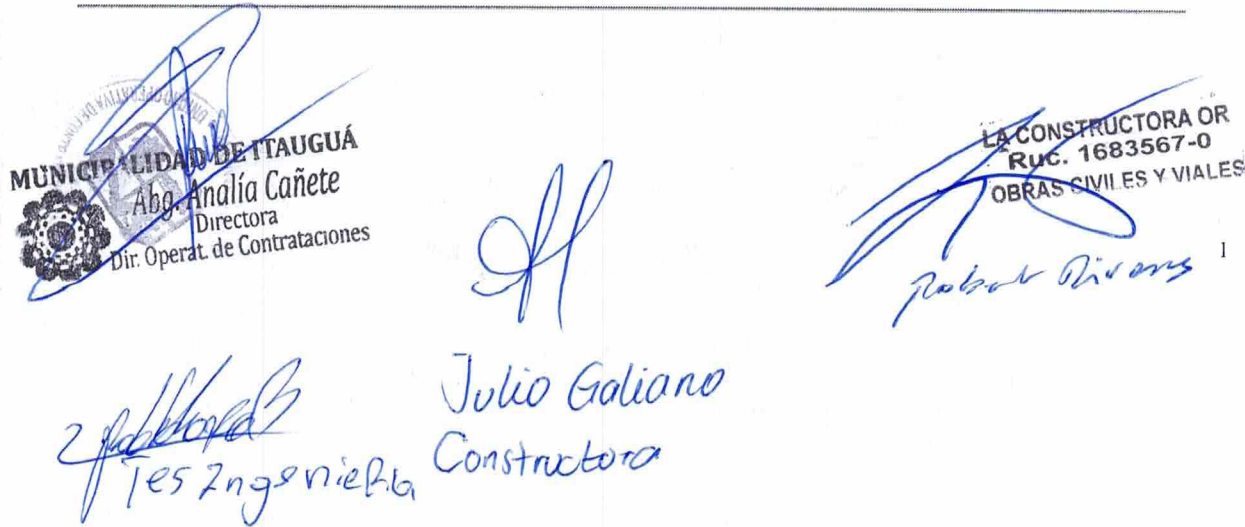 MUNICIPALIDAD DE ITAUGUÁ
Abg. Analía Cañete
Directora
Dir. Operat. de Contrataciones
LA CONSTRUCTORA OR
Ruc. 1683567-0
OBRAS CIVILES Y VIALES
1
Julio Galiano
Constructora
Tes IngenieRia